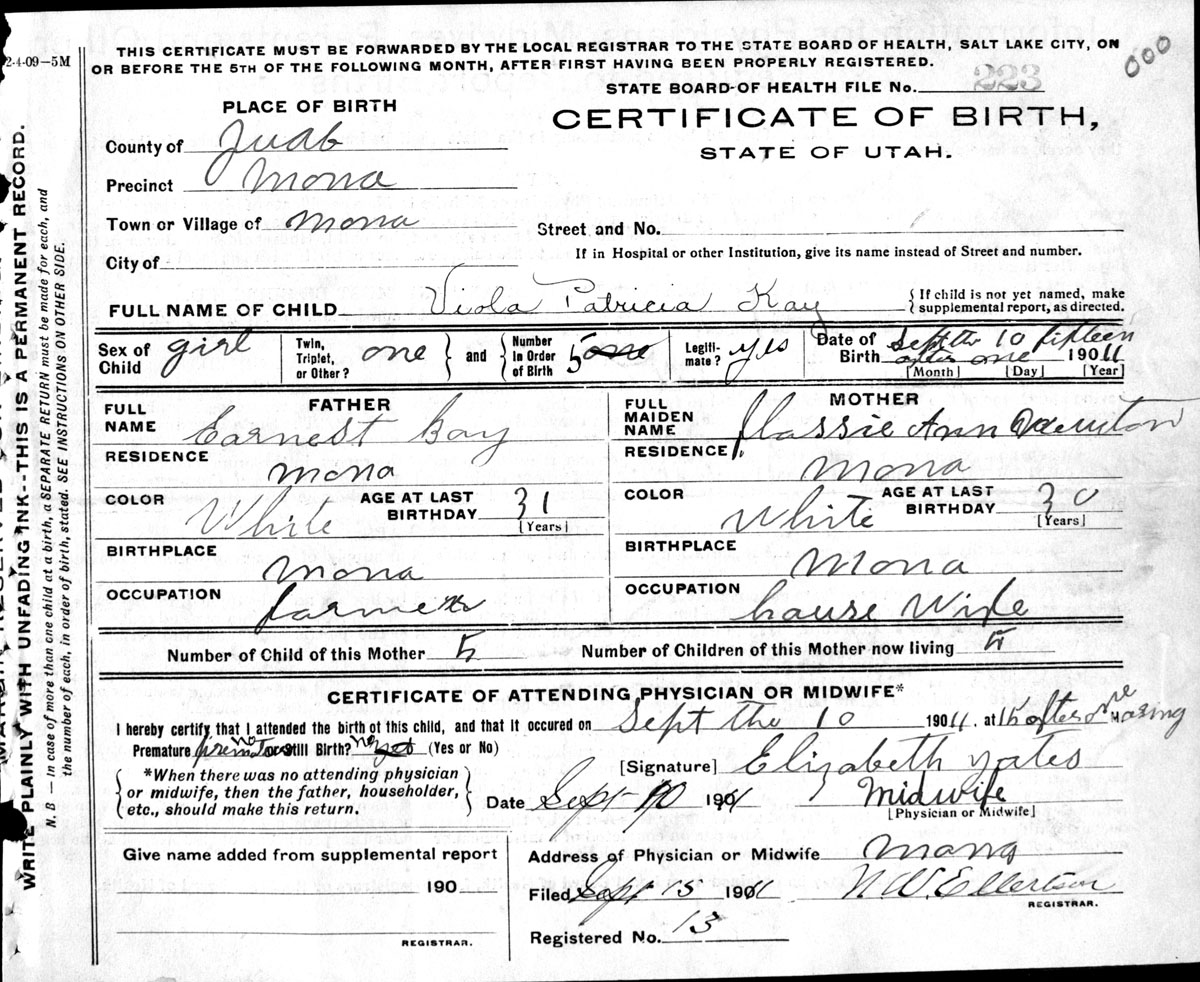 THIS CERTIFICATE MUST BE FORWARDED BY THE LOCAL REGISTRAR TO THE STATE BOARD OF HEALTH, SALT LAKE CITY, ON
OR BEFORE THE 5TH OF THE FOLLOWING MONTH, AFTER FIRST HAVING BEEN PROPERLY REGISTERED.
2-4-09—5M
000
STATE BOARD OF HEALTH FILE No. 223
PLACE OF BIRTH
CERTIFICATE OF BIRTH,
STATE OF UTAH.
County of Juab
Precinct Mona
Town or Village of Mona
Street and No.
City of
If in Hospital or other Institution, give its name instead of Street and number.
FULL NAME OF CHILD Viola Patricia Kay
{If child is not yet named, make
supplemental report, as directed.
Sex of Child girl
Twin, Triplet, or Other? one
and
Number In Order of Birth 5 one
Legitimate? yes
Date of Birth Sept the 10 fifteen
after one 19011
[Month] [Day] [Year]
FATHER
FULL NAME Earnest Kay
RESIDENCE Mona
COLOR White AGE AT LAST BIRTHDAY 31
[Years]
BIRTHPLACE Mona
OCCUPATION farmer
MOTHER
FULL MAIDEN NAME Ann
RESIDENCE Mona
COLOR White AGE AT LAST BIRTHDAY 30
[Years]
BIRTHPLACE Mona
OCCUPATION house Wife
Number of Child of this Mother 5 Number of Children of this Mother now living 5
CERTIFICATE OF ATTENDING PHYSICIAN OR MIDWIFE*
I hereby certify that I attended the birth of this child, and that it occured on Sept the 10 19011. at 15 after one
Premature no Still Birth? no (Yes or No)
[Signature] Elizabeth Yates
{*When there was no attending physician
or midwife, then the father, householder,
etc., should make this return.}
Date Sept 10 1901 Midwife
[Physician or Midwife]
Give name added from supplemental report
190
REGISTRAR.
Address of Physician or Midwife Mona
Filed Sept 15 1901 N.W. Ellertson
REGISTRAR.
Registered No. 13
WRITE PLAINLY WITH UNFADING INK--THIS IS A PERMANENT RECORD.
N. B.—In case of more than one child at a birth, a SEPARATE RETURN must be made for each, and
the number of each, in order of birth, stated. SEE INSTRUCTIONS ON OTHER SIDE.